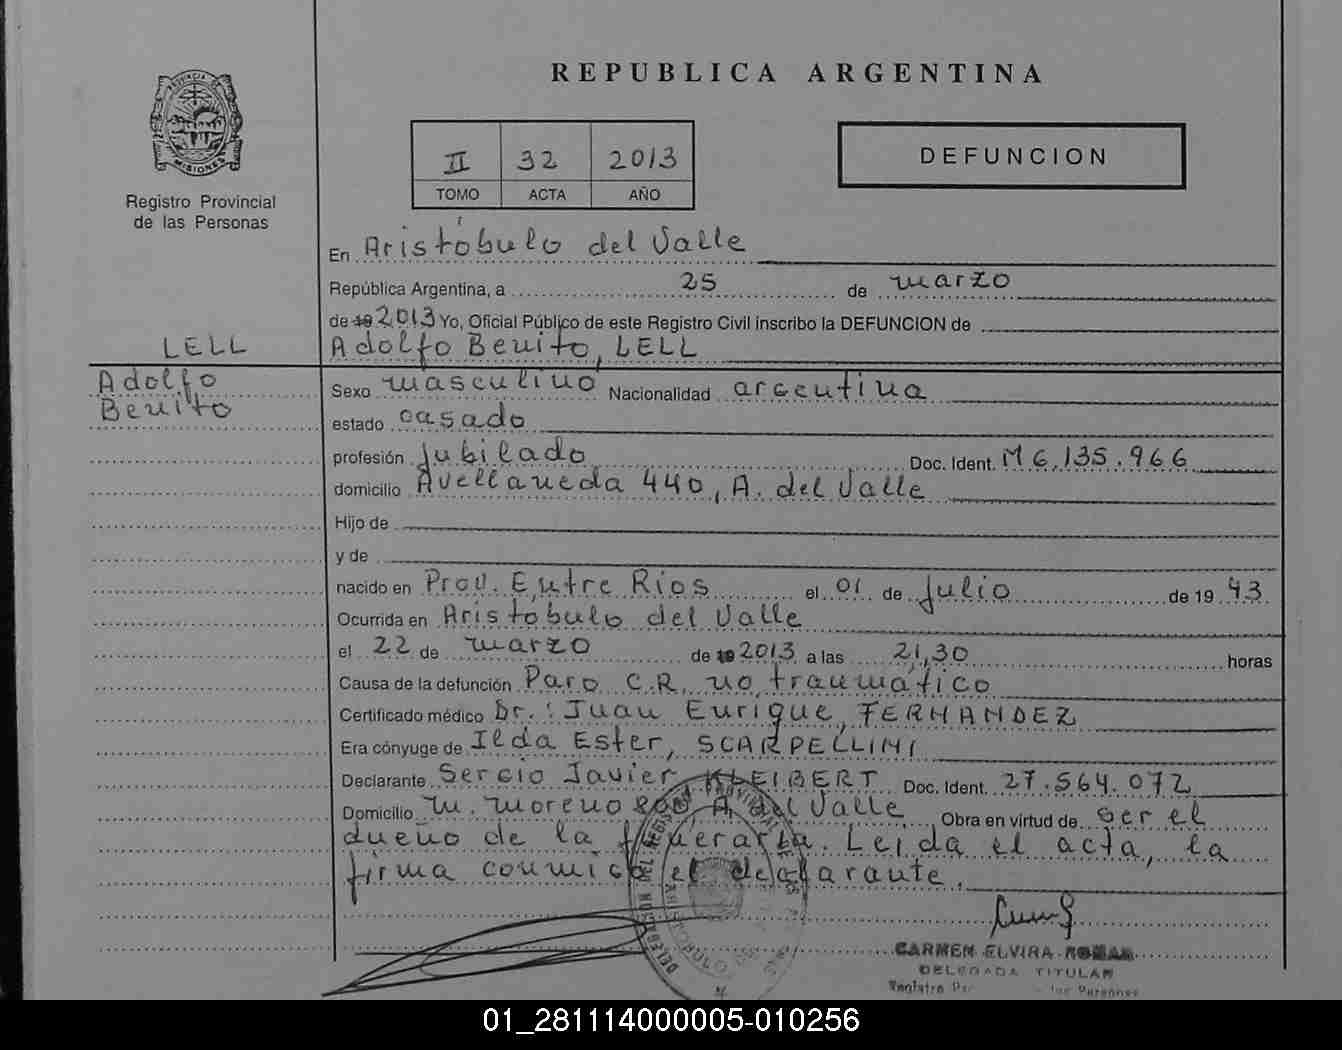 REPUBLICA ARGENTINA
PROVINCIA DE
MISIONES
Registro Provincial
de las Personas
II 32 2013
TOMO ACTA AÑO
DEFUNCION
En Aristóbulo del Valle
República Argentina, a 25 de marzo
de 19 2013 Yo, Oficial Público de este Registro Civil inscribo la DEFUNCION de
LELL
Adolfo Benito, LELL
Adolfo
Benito
Sexo masculino Nacionalidad argentina
estado casado
profesión jubilado Doc. Ident. M 6.135.966
domicilio Avellaneda 440, A. del Valle
Hijo de
y de
nacido en Prov. Entre Rios el 01 de julio de 19 43
Ocurrida en Aristobulo del Valle
el 22 de marzo de 19 2013 a las 21,30 horas
Causa de la defunción Paro C.R. no traumático
Certificado médico Dr.: Juan Enrique, FERNANDEZ
Era cónyuge de Ilda Ester, SCARPELLINI
Declarante Sergio Javier KLEIBERT Doc. Ident. 27.564.072
Domicilio M. Moreno A. del Valle Obra en virtud de ser el
dueño de la funeraria. Leida el acta, la
firma conmigo el declarante.
CARMEN ELVIRA ROMAN
DELEGADA TITULAR
Registro las Personas
01_281114000005-010256